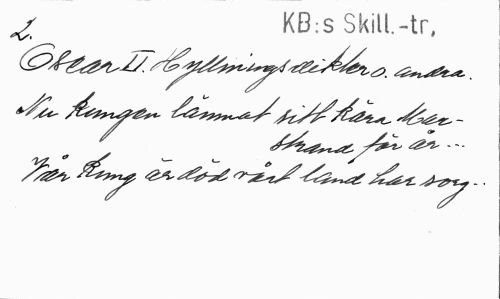 2.
KB:s Skill.-tr,
Oscar II. Hyllningsdikter o. andra.
Nu kungen lämnat sitt kära Mar-
strand för år...
Vår kung är död vårt land har sorg..